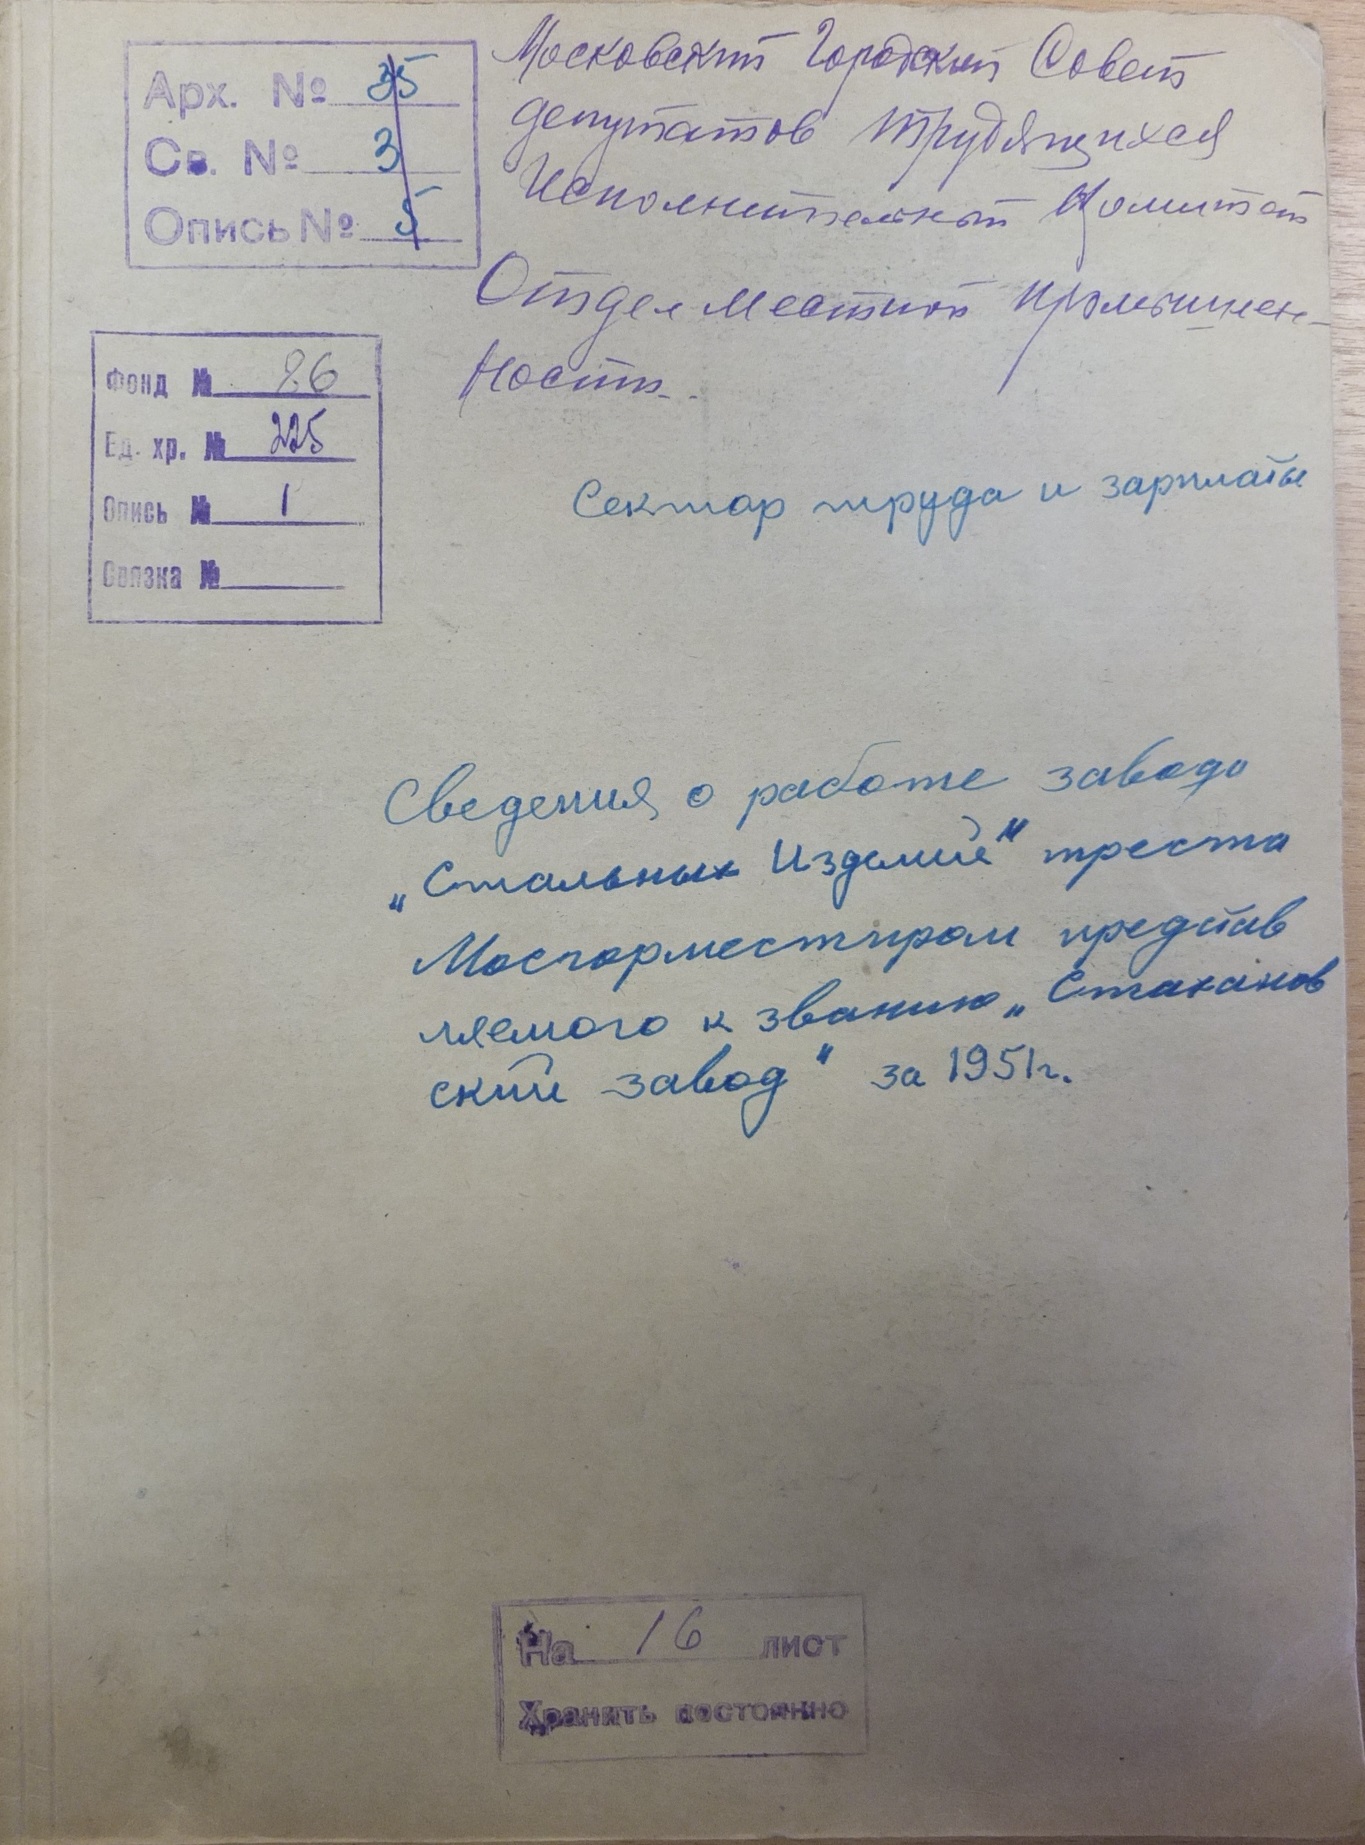 Арх. № 35
Св. № 3
Опись № 5
Московский Городской Совет
депутатов трудящихся
Исполнительный Комитет
Отдел местной промышлен-
ности.
Фонд № 26
Ед. хр. № 225
Опись № 1
Связка №
Сектор труда и зарплаты
Сведения о работе завода
„Стальных Изделий" треста
Мосгорместпром представ
ляемого к званию „Стаханов
ский завод" за 1951г.
На 16 лист
Хранить постоянно